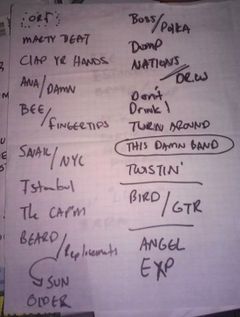 ORF
MARTY BEAT
CLAP YR HANDS
ANA/DAMN
BEE/
FINGERTIPS
SNAIL/NYC
Istanbul
The CAPM
BEARD/
Replacements
SUN
OLDER
BOSS/
POLKA
DUMP
NATIONS/
DRUN
Don't
Drink!
TURN AROUND
THIS DAMN BAND
TWISTIN'
BIRD/
GTR
ANGEL
EXP